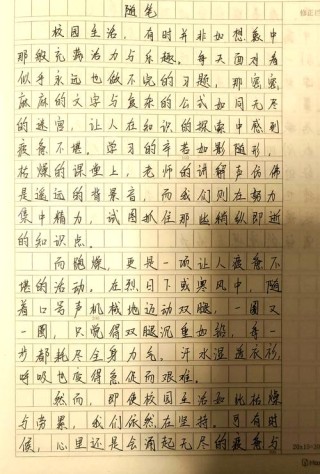 随笔
校园生活，有时并非如想象中
那般充满活力与乐趣。每天面对着
似乎永远也做不完的习题，那密密
麻麻的文字与复杂的公式如同无尽
的迷宫，让人在知识的探索中感到
疲惫不堪。学习的辛苦如影随形，
枯燥的课堂上，老师的讲解声仿佛
是遥远的背景音，而我们则在努力
集中精力，试图抓住那些稍纵即逝
的知识点。
而跑操，更是一项让人疲惫不
堪的活动。在烈日下或寒风中，随
着口号声机械地迈动双腿，一圈又
一圈，只觉得双腿沉重如铅，每一
步都耗尽全身力气。汗水湿透衣衫，
呼吸也变得急促而艰难。
然而，即使校园生活如此枯燥
与劳累，我们依然在坚持。可有时
候，心里还是会涌起无尽的疲惫与